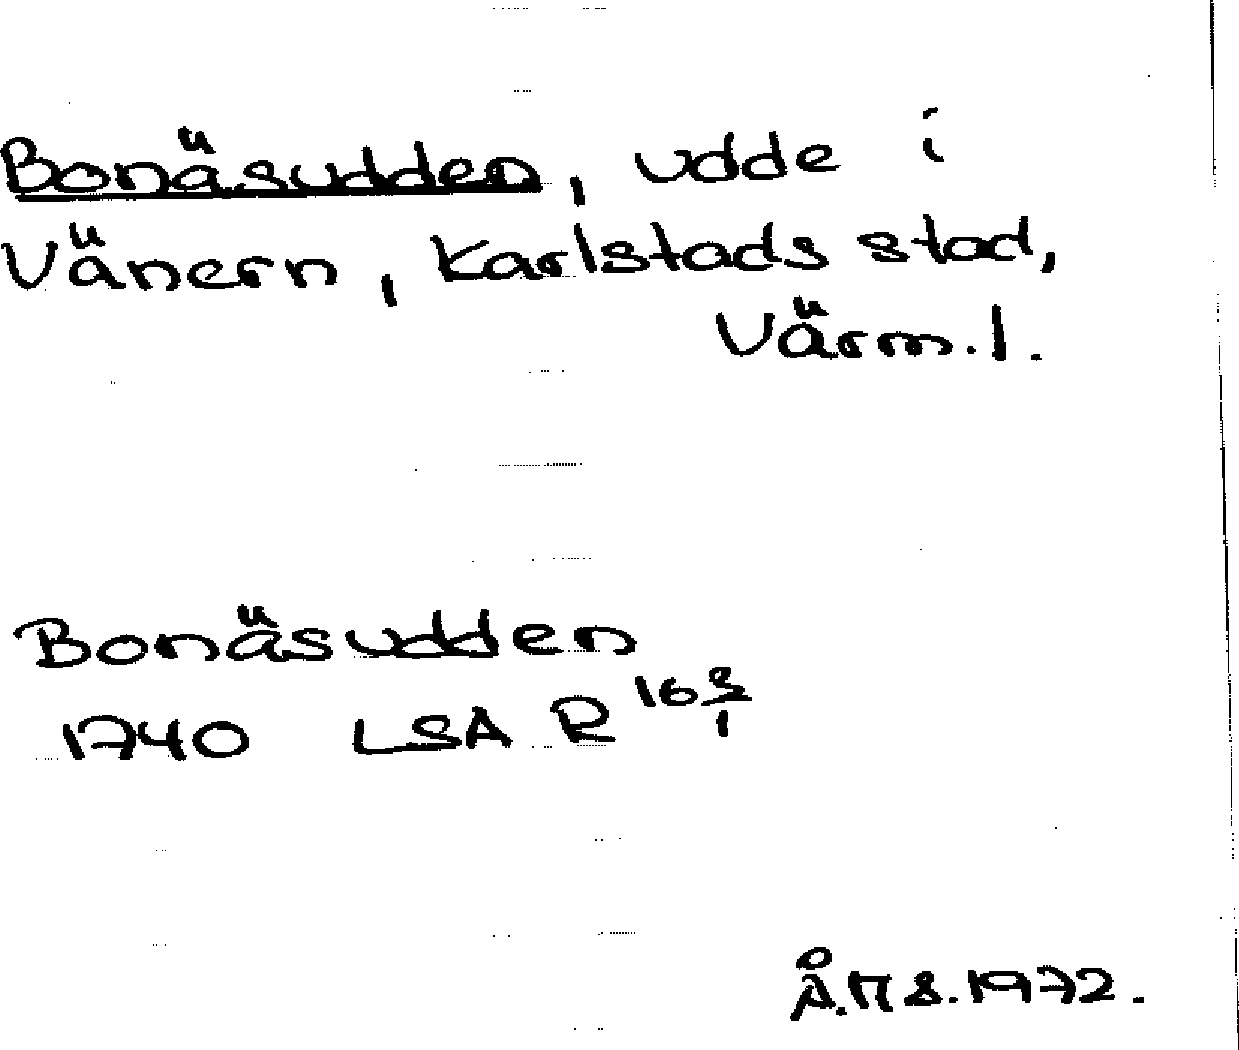 Bonäsudden, udde i
Vänern, Karlstads stad,
Värm.l.
Bonäsudden
1740 LSA R 16 3/1
Å.M S. 1972.